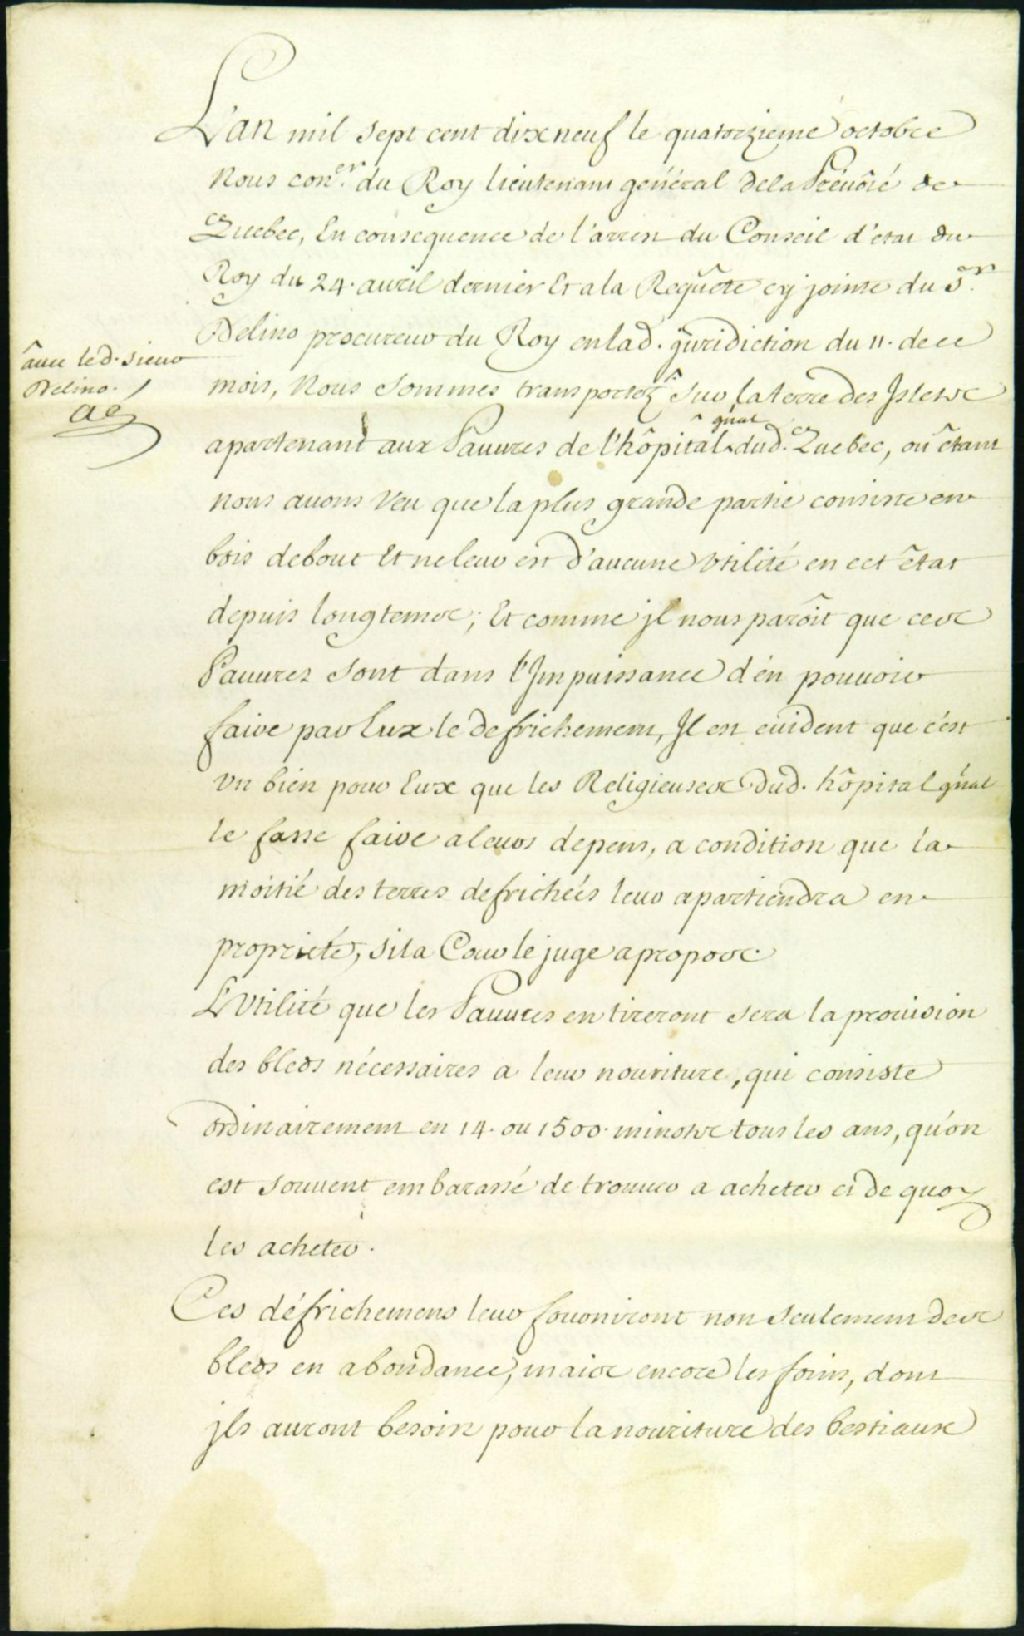 L'an mil sept cent dix neuf le quatorzieme octobre
Nous con.er du Roy lieutenant genéral dela Prévôté de
Quebec, En consequence de l'arrest du Conseil d'etat du
Roy du 24. avril dernier Et a la Requête cy jointe du S.r
Delino procureur du Roy en lad. juridiction du 11. de ce
avec led. sieur
Delino.
mois, Nous sommes transportez sur la terre des Islets
apartenant aux Pauvres de l'hôpital g'nal dud. Quebec, où étant
nous avons veu que la plus grande partie consiste en
bois debout Et ne leur est d'aucune Vtilité en cet état
depuis longtems; Et comme jl nous paroît que ces
Pauvres sont dans l'Jmpuissance d'en pouvoir
faire par Eux le defrichement, Jl est evident que c'est
vn bien pour Eux que les Religieuses dud. hôpital g'nal
le fasse faire a leurs depens, a condition que la
moitié des terres defrichées leur apartiendra en
proprieté, si la Cour le juge a propos
L'Vtilité que les Pauvres en tireront sera la provision
des bleds nécessaires a leur nouriture, qui consiste
ordinairement en 14. ou 1500. minots tous les ans, qu'on
est souvent embarassé de trouver a acheter et de quoy
les acheter.
Ces défrichemens leur fourniront non seulement des
bleds en abondance, mais encore les foins, dont
jls auront besoin pour la nouriture des bestiaux